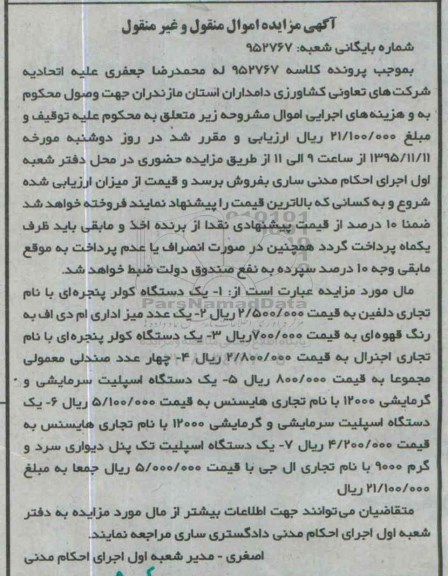 آگهی مزایده اموال منقول و غیر منقول
شماره بایگانی شعبه: ۹۵۲۷۶۷
بموجب پرونده کلاسه ۹۵۲۷۶۷ له محمدرضا جعفری علیه اتحادیه
شرکت های تعاونی کشاورزی دامداران استان مازندران جهت وصول محکوم
به و هزینه های اجرایی اموال مشروحه زیر متعلق به محکوم علیه توقیف و
مبلغ ۲۱/۱۰۰/۰۰۰ ریال ارزیابی و مقرر شد در روز دوشنبه مورخه
۱۳۹۵/۱۱/۱۱ از ساعت ۹ الی ۱۱ از طریق مزایده حضوری در محل دفتر شعبه
اول اجرای احکام مدنی ساری بفروش برسد و قیمت از میزان ارزیابی شده
شروع و به کسانی که بالاترین قیمت را پیشنهاد نمایند فروخته خواهد شد
ضمنا ۱۰ درصد از قیمت پیشنهادی نقدا از برنده اخذ و مابقی باید ظرف
یکماه پرداخت گردد همچنین در صورت انصراف یا عدم پرداخت به موقع
مابقی وجه ۱۰ درصد سپرده به نفع صندوق دولت ضبط خواهد شد.
مال مورد مزایده عبارت است از: ۱- یک دستگاه کولر پنجره ای با نام
تجاری دلفین به قیمت ۲/۵۰۰/۰۰۰ ریال ۲- یک عدد میز اداری ام دی اف به
رنگ قهوه ای به قیمت ۷۰۰/۰۰۰ ریال ۳- یک دستگاه کولر پنجره ای با نام
تجاری اجنرال به قیمت ۲/۸۰۰/۰۰۰ ریال ۴- چهار عدد صندلی معمولی
مجموعا به قیمت ۸۰۰/۰۰۰ ریال ۵- یک دستگاه اسپلیت سرمایشی و
گرمایشی ۱۲۰۰۰ با نام تجاری هایسنس به قیمت ۵/۱۰۰/۰۰۰ ریال ۶- یک
دستگاه اسپلیت سرمایشی و گرمایشی ۱۲۰۰۰ با نام تجاری هایسنس به
قیمت ۴/۲۰۰/۰۰۰ ریال ۷- یک دستگاه اسپلیت تک پنل دیواری سرد و
گرم ۹۰۰۰ با نام تجاری ال جی با قیمت ۵/۰۰۰/۰۰۰ ریال جمعا به مبلغ
۲۱/۱۰۰/۰۰۰ ریال
متقاضیان می توانند جهت اطلاعات بیشتر از مال مورد مزایده به دفتر
شعبه اول اجرای احکام مدنی دادگستری ساری مراجعه نمایند.
اصغری - مدیر شعبه اول اجرای احکام مدنی
ParsNamadData